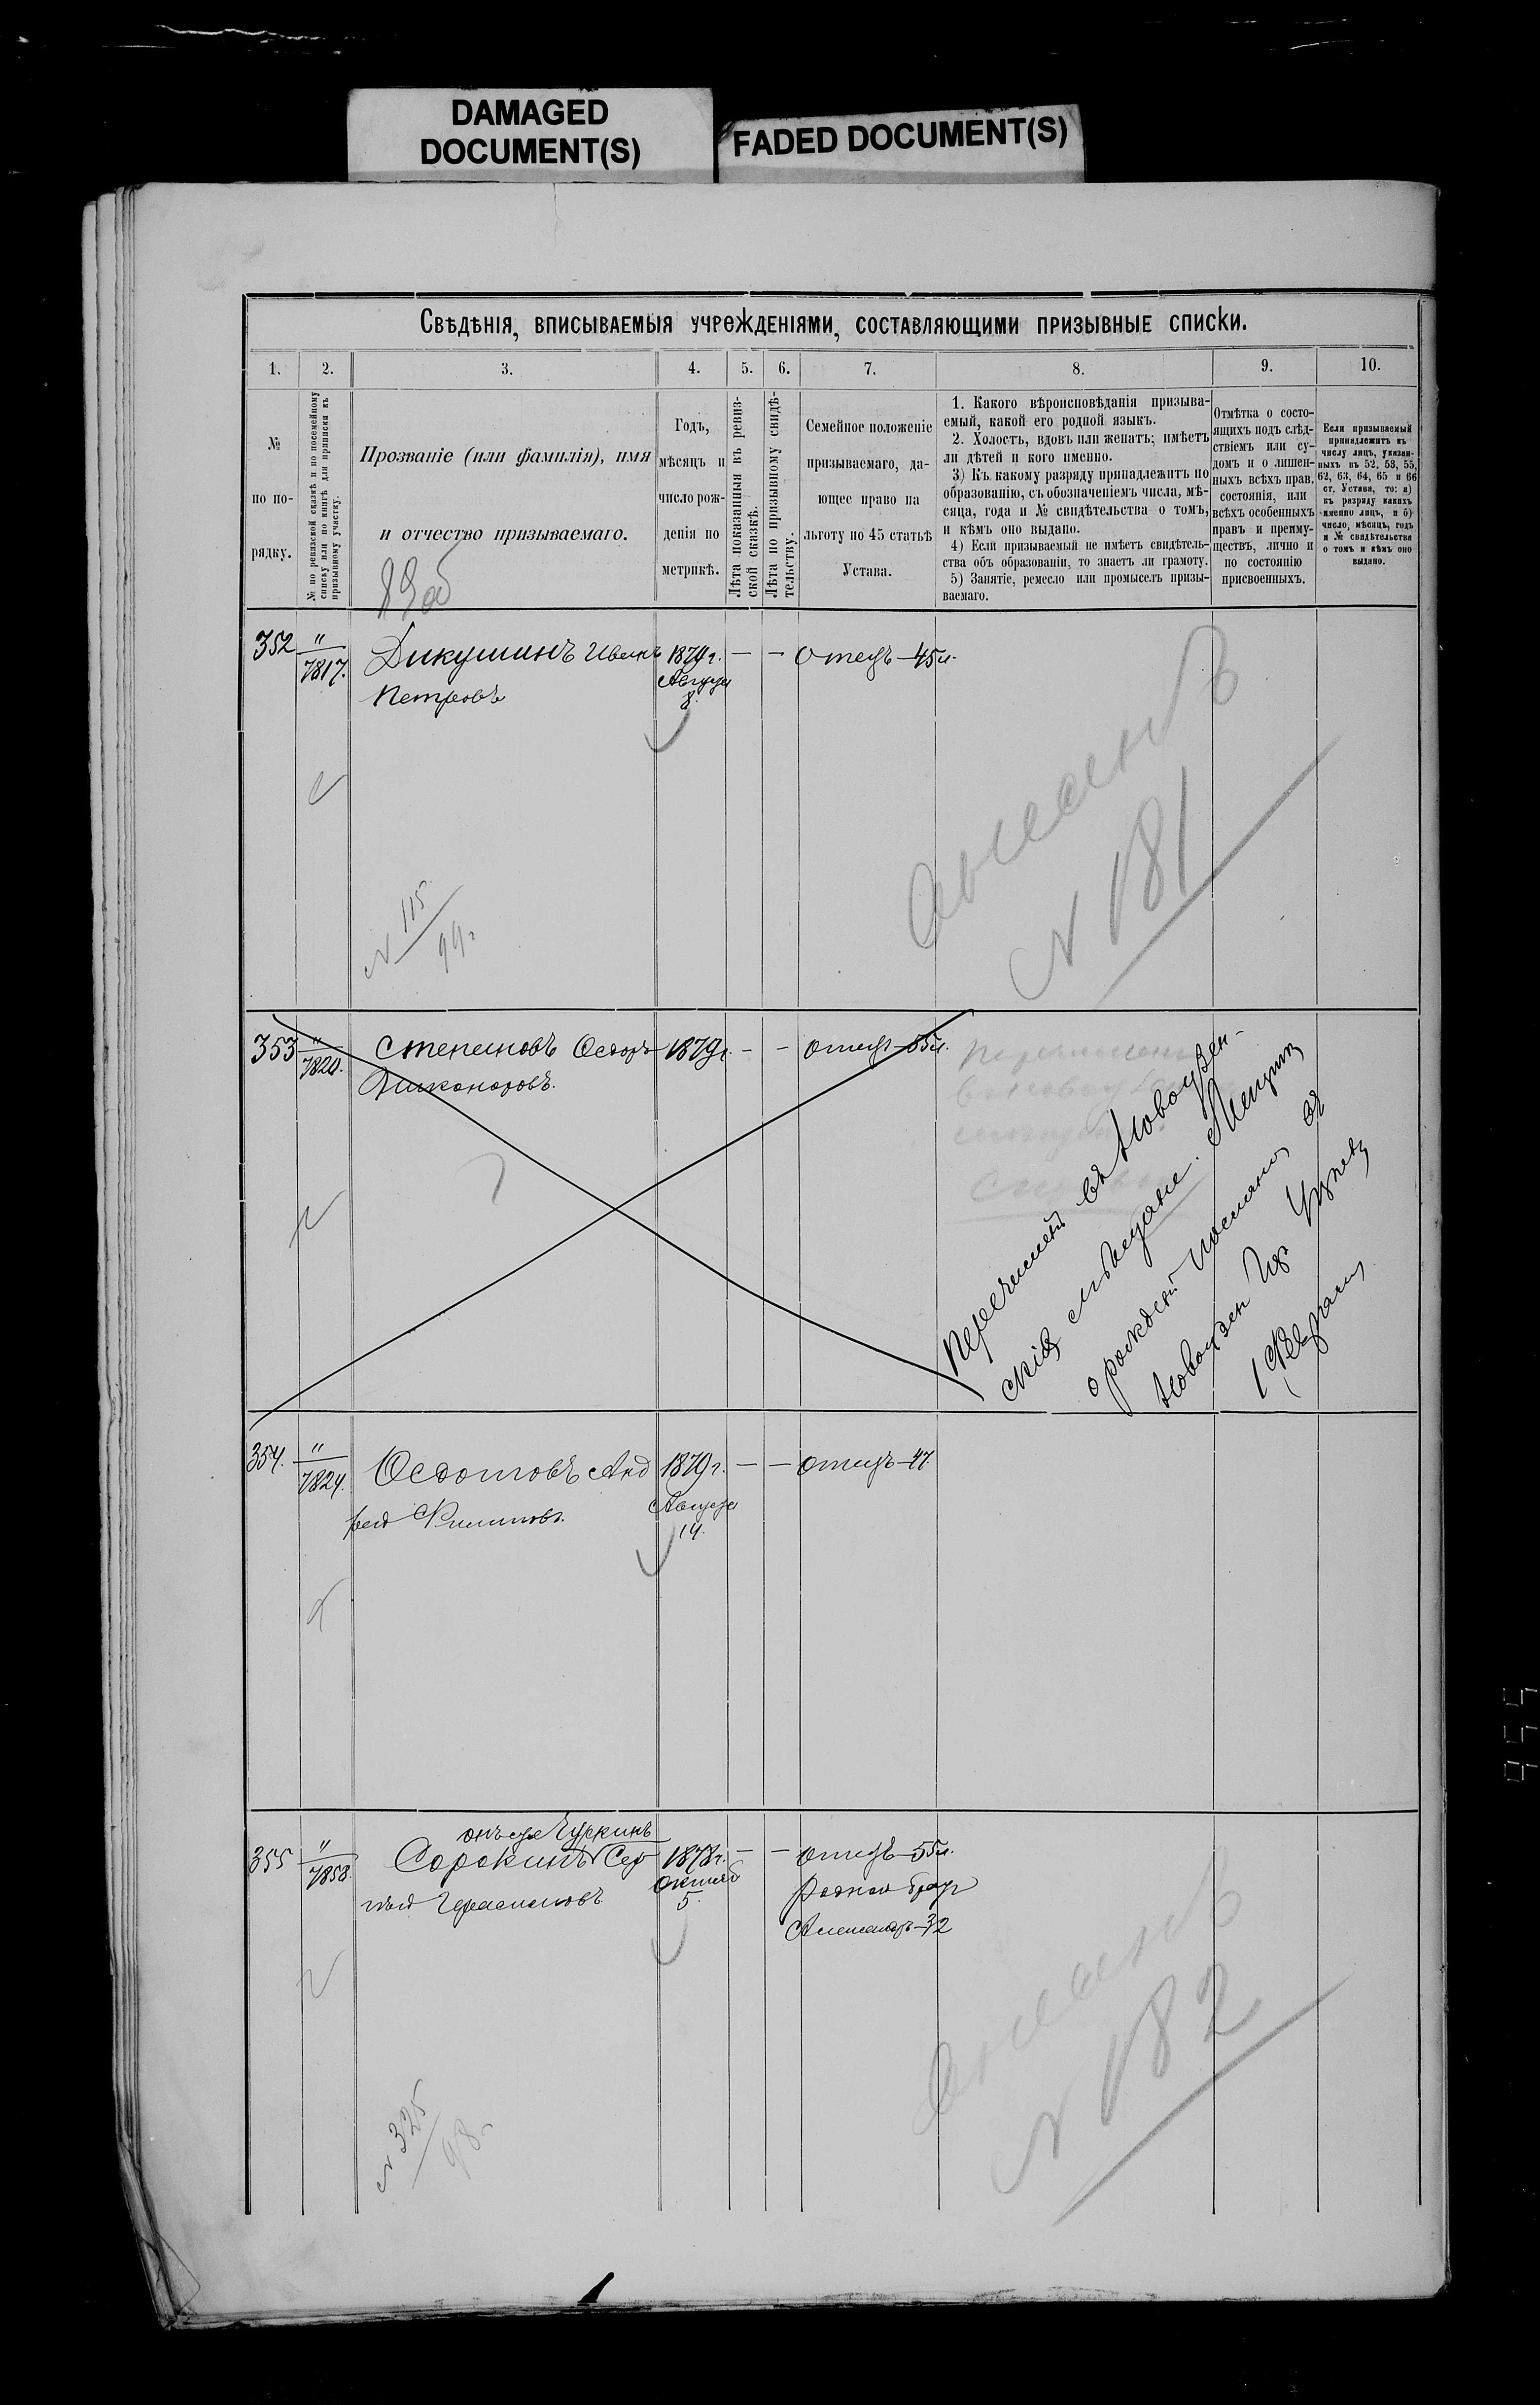 DAMAGED
DOCUMENT(S)
FADED DOCUMENT(S)
Свѣдѣнія, вписываемыя учрежденіями, составляющими призывные списки.
1. 2. 3. 4. 5. 6. 7. 8. 9. 10.
№
по по-
рядку.
№ по ревизской сказкѣ и по посемейному
списку или по книгѣ для приписки къ
призывному участку.
Прозваніе (или фамилія), имя
и отчество призываемаго.
Годъ,
мѣсяцъ и
число рож-
денія по
метрикѣ.
Лѣта показанныя въ ревиз-
ской сказкѣ.
Лѣта по призывному свидѣ-
тельству.
Семейное положеніе
призываемаго, да-
ющее право на
льготу по 45 статьѣ
Устава.
1. Какого вѣроисповѣданія призыва-
емый, какой его родной языкъ.
2. Холостъ, вдовъ или женатъ; имѣетъ
ли дѣтей и кого именно.
3) Къ какому разряду принадлежитъ по
образованію, съ обозначеніемъ числа, мѣ-
сяца, года и № свидѣтельства о томъ,
и кѣмъ оно выдано.
4) Если призываемый не имѣетъ свидѣтель-
ства объ образованіи, то знаетъ ли грамоту.
5) Занятіе, ремесло или промыселъ призы-
ваемаго.
Отмѣтка о состо-
ящихъ подъ слѣд-
ствіемъ или су-
домъ и о лишен-
ныхъ всѣхъ прав.
состоянія, или
всѣхъ особенныхъ
правъ и преиму-
ществъ, лично и
по состоянію
присвоенныхъ.
Если призываемый
принадлежитъ къ
числу лицъ, указан-
ныхъ въ 52, 53, 55,
62, 63, 64, 65 и 66
ст. Устава, то: а)
къ разряду какихъ
именно лицъ, и б)
число, мѣсяцъ, годъ
и № свидѣтельства
о томъ и кѣмъ оно
выдано.
352 " 7817. Дикушинъ Иванъ 1879 г. — — отецъ—45 л.
Петровъ Августа
8.
№ 181
№ 115
99 г
353 " 7820. Степановъ Федоръ 1879 г. — — отецъ—55 л.
Никаноровъ.
Перечисленъ въ Новоузен-
скіе мѣщане.
Новоузен
1 Февраля
354. " 7824. Федотовъ Анд 1879 г. — — отецъ—47.
рей Филиповъ. Августа
14.
онъ же Чуркинъ
355 " 7858. Сорокинъ Сер 1878 г. — — отецъ—55 л.
гѣй Герасимовъ Октяб
5.
родной братъ
Александръ—32
№ 182
№ 325
98 г
955